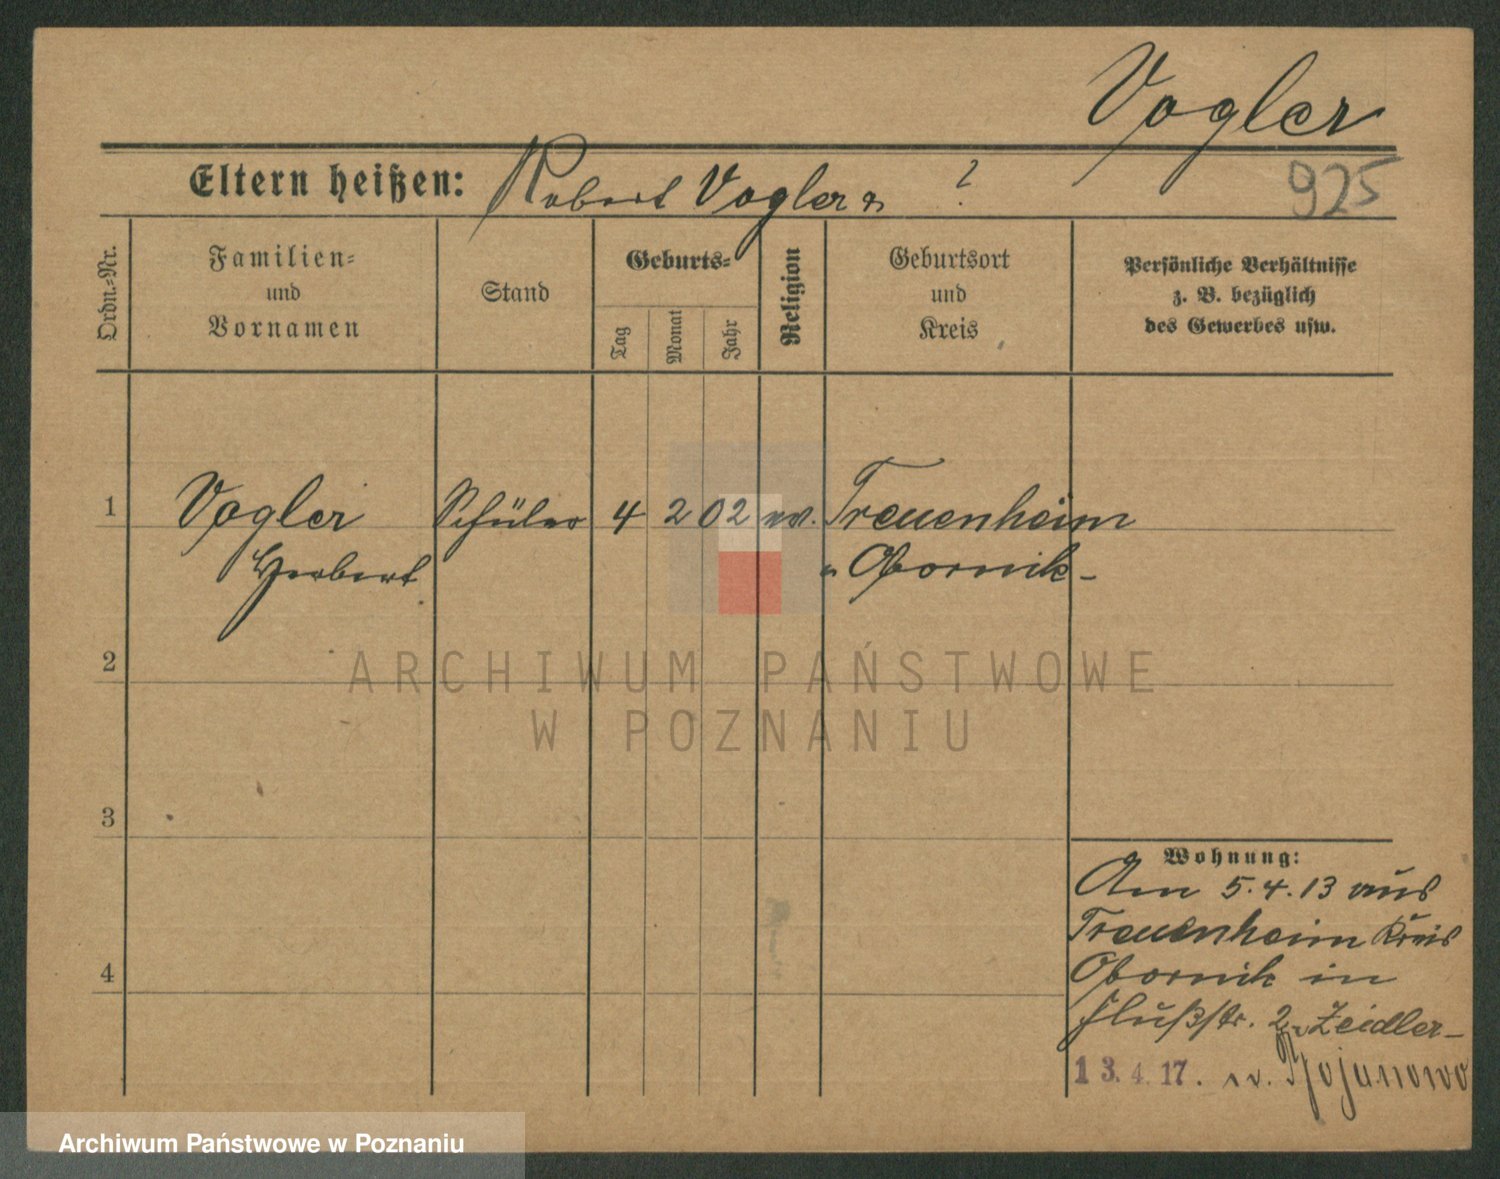 Vogler
Eltern heißen: Robert Vogler u ?
925
Ordn.-Nr.
Familien-
und
Vornamen
Stand
Geburts-
Tag
Monat
Jahr
Religion
Geburtsort
und
Kreis
Persönliche Verhältnisse
z. B. bezüglich
des Gewerbes usw.
1 Vogler Schüler 4 2 02 ev. Treuenheim
Herbert " Obornik
2
3
4
Wohnung:
Am 5.4.13 aus
Treuenheim Kreis
Obornik in
Flußstr. 2 Zeidler
13.4.17.
ARCHIWUM PAŃSTWOWE
W POZNANIU
Archiwum Państwowe w Poznaniu